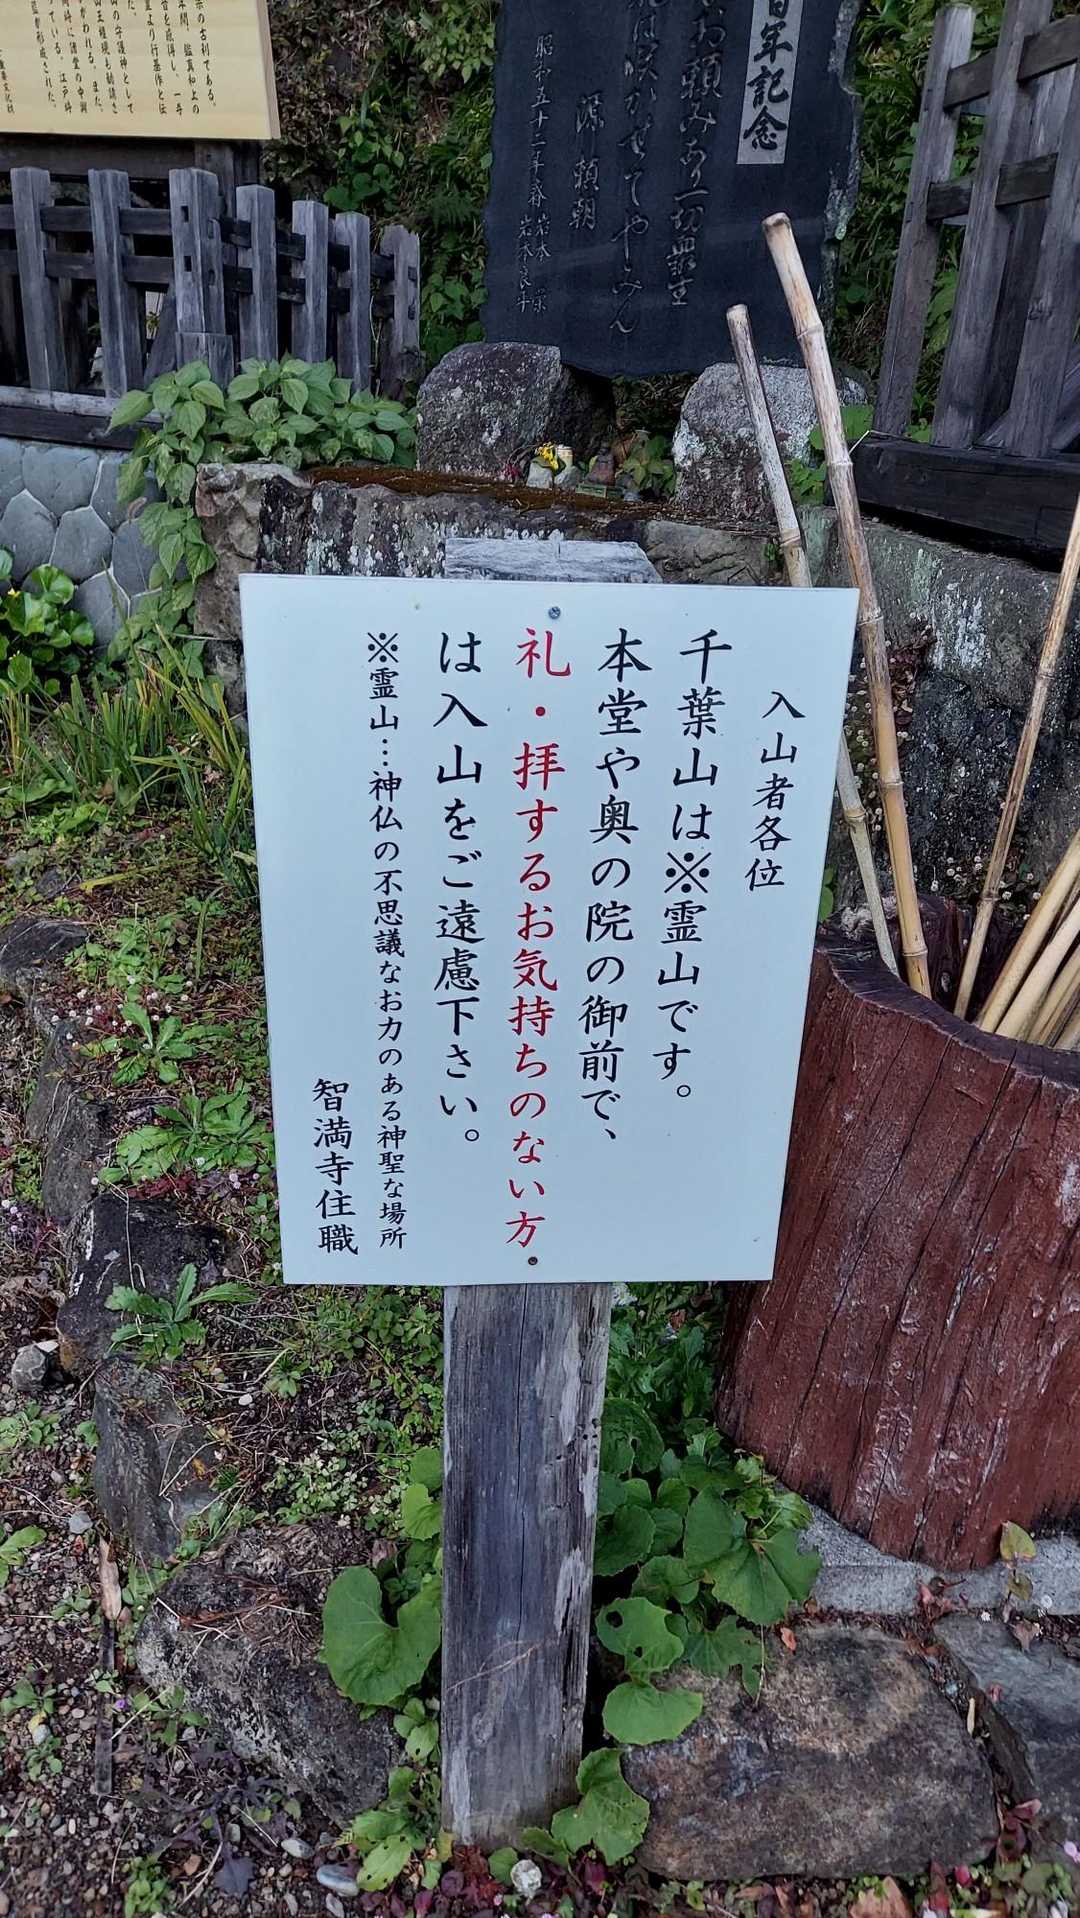 入山者各位
千葉山は※霊山です。
本堂や奥の院の御前で、
礼・拝するお気持ちのない方
は入山をご遠慮下さい。
※霊山…神仏の不思議なお力のある神聖な場所
智満寺住職
百年記念
お頼みあり一切衆生
花は咲かせてやみん
源頼朝
昭和五十二年春 岩本
岩本良斗
の古刹である。
年間、鑑真和上の
音を彫刻し、一寺
より行基作と伝
山の守護神として
山王権現も勧請さ
かわれる。また、
ている。江戸時